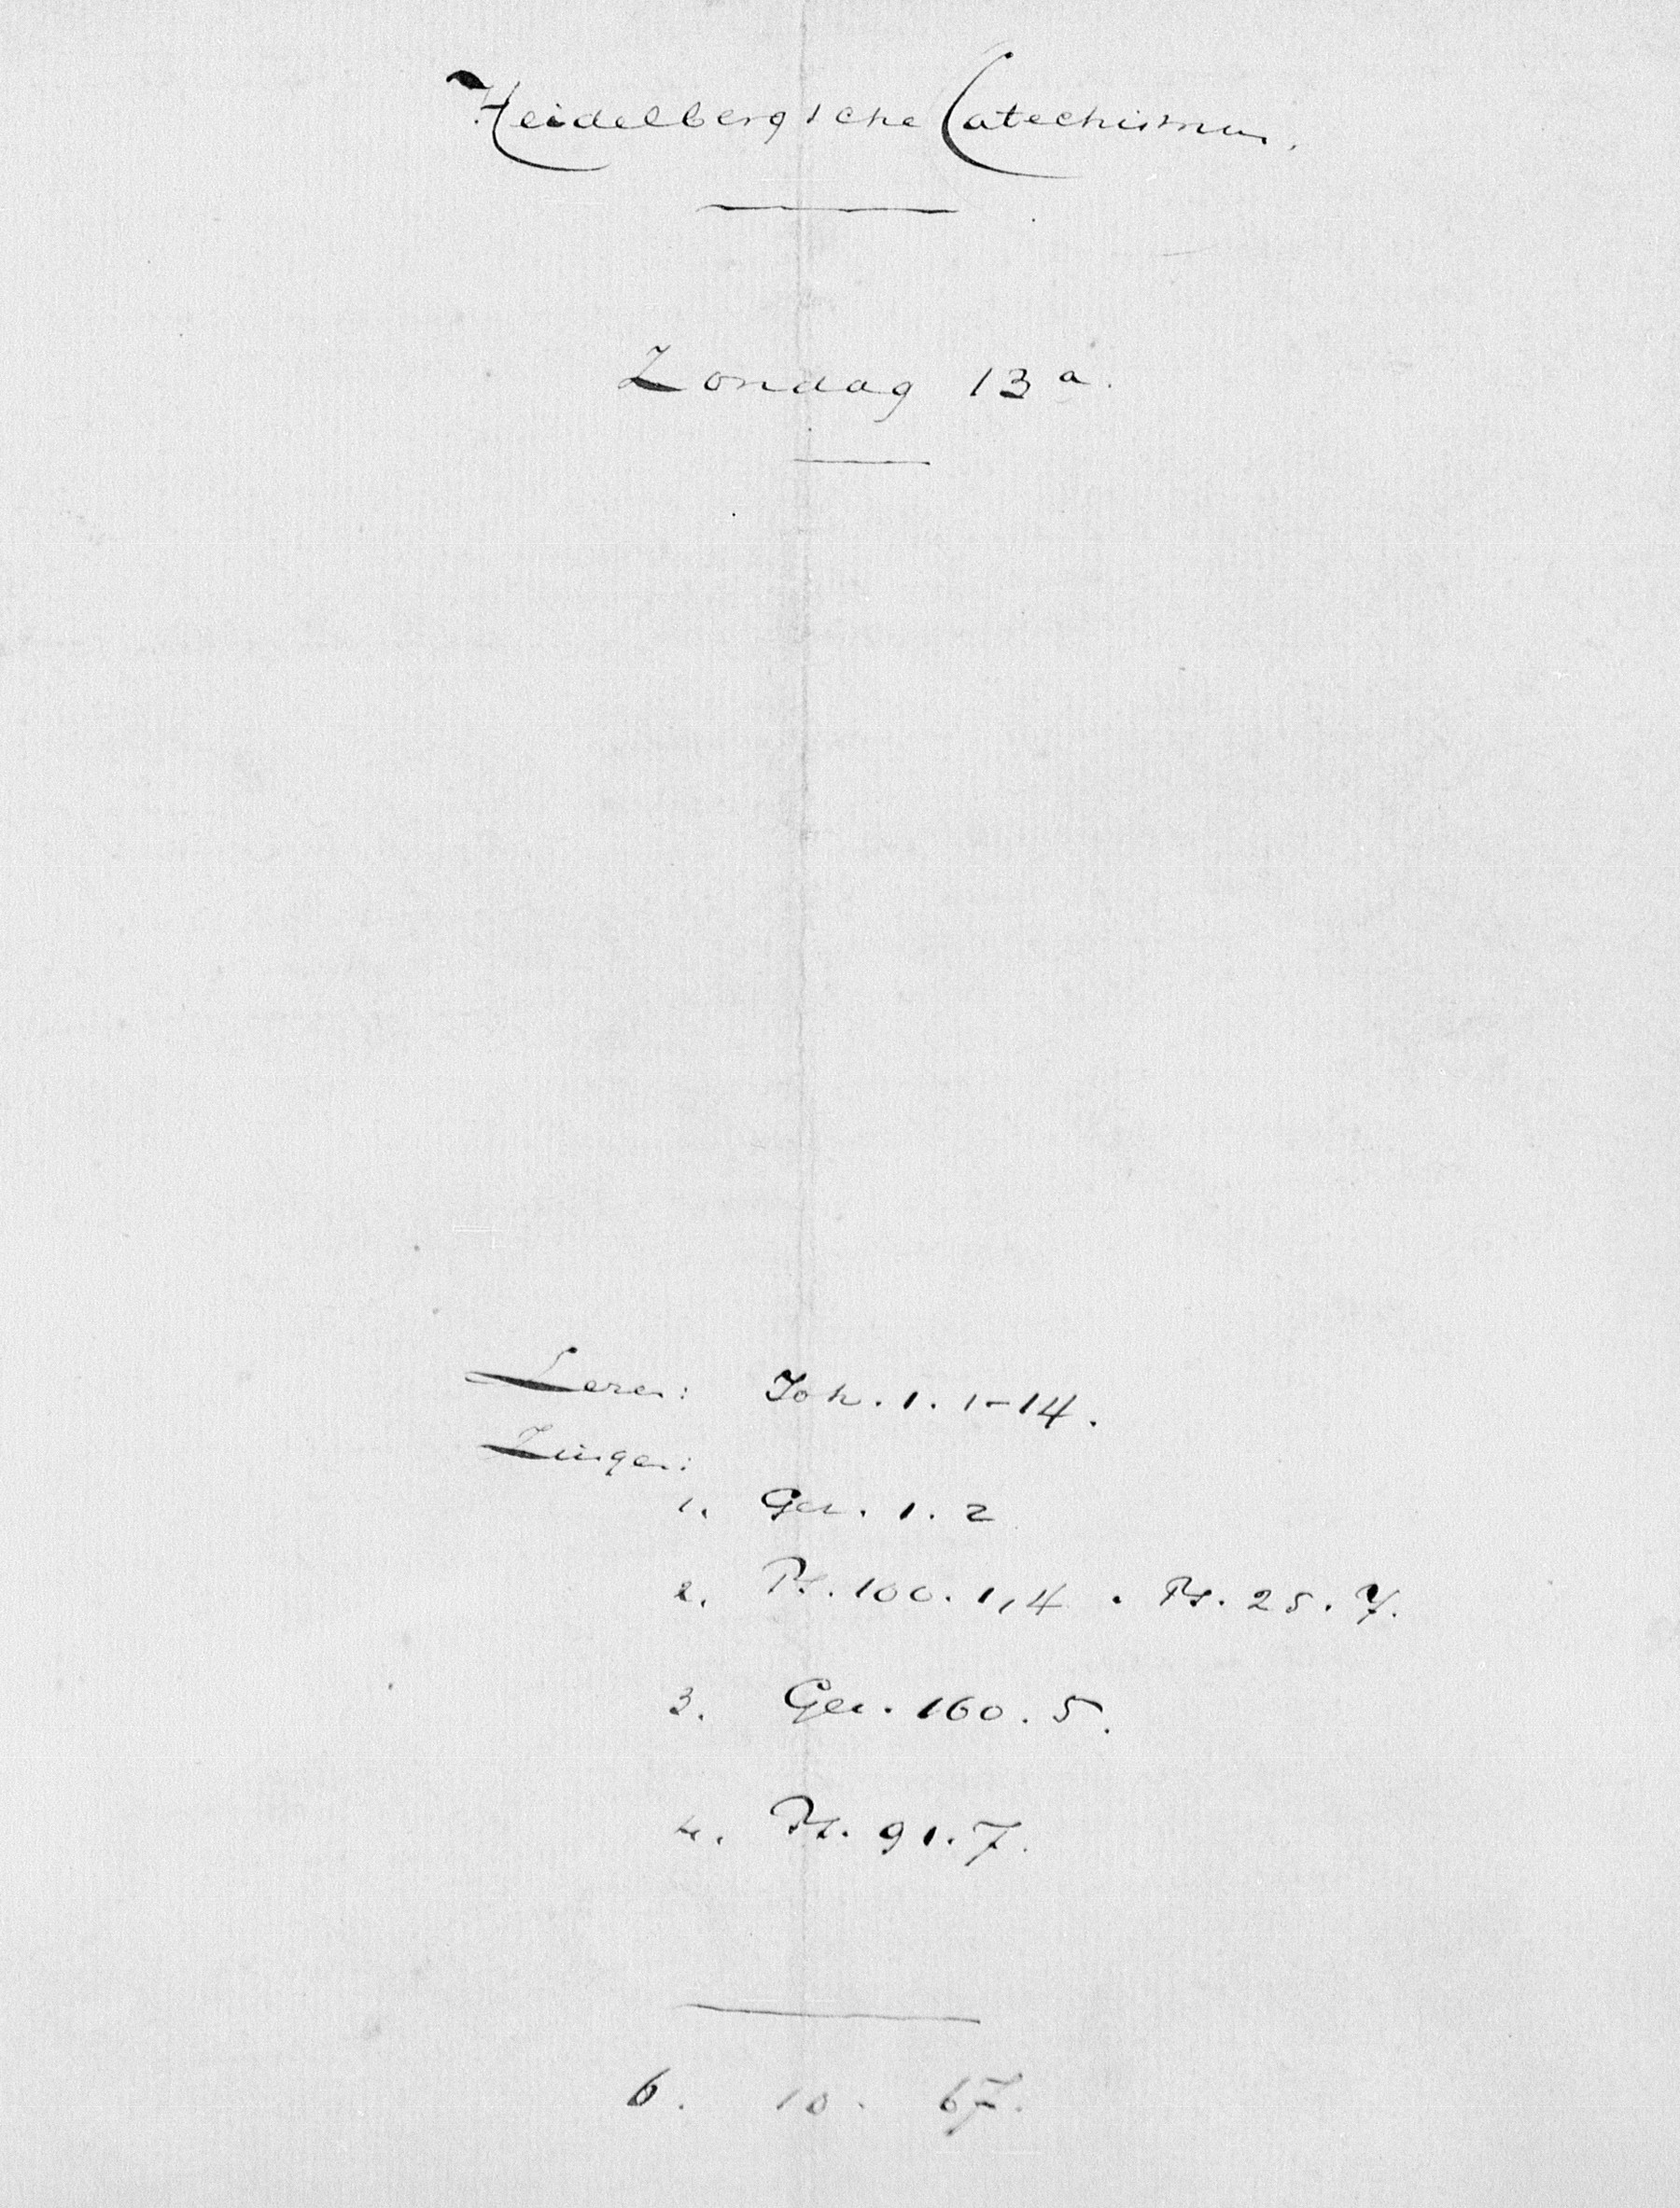 Heidelbergsche Catechismus.
Zondag 13a.
Lezen: Joh. 1. 1-14.
Zingen:
1. Gez. 1. 2
2. Ps. 100. 1,4 . Ps. 25. 7.
3. Gez. 160. 5.
4. Ps. 91. 7.
6. 10. 67.